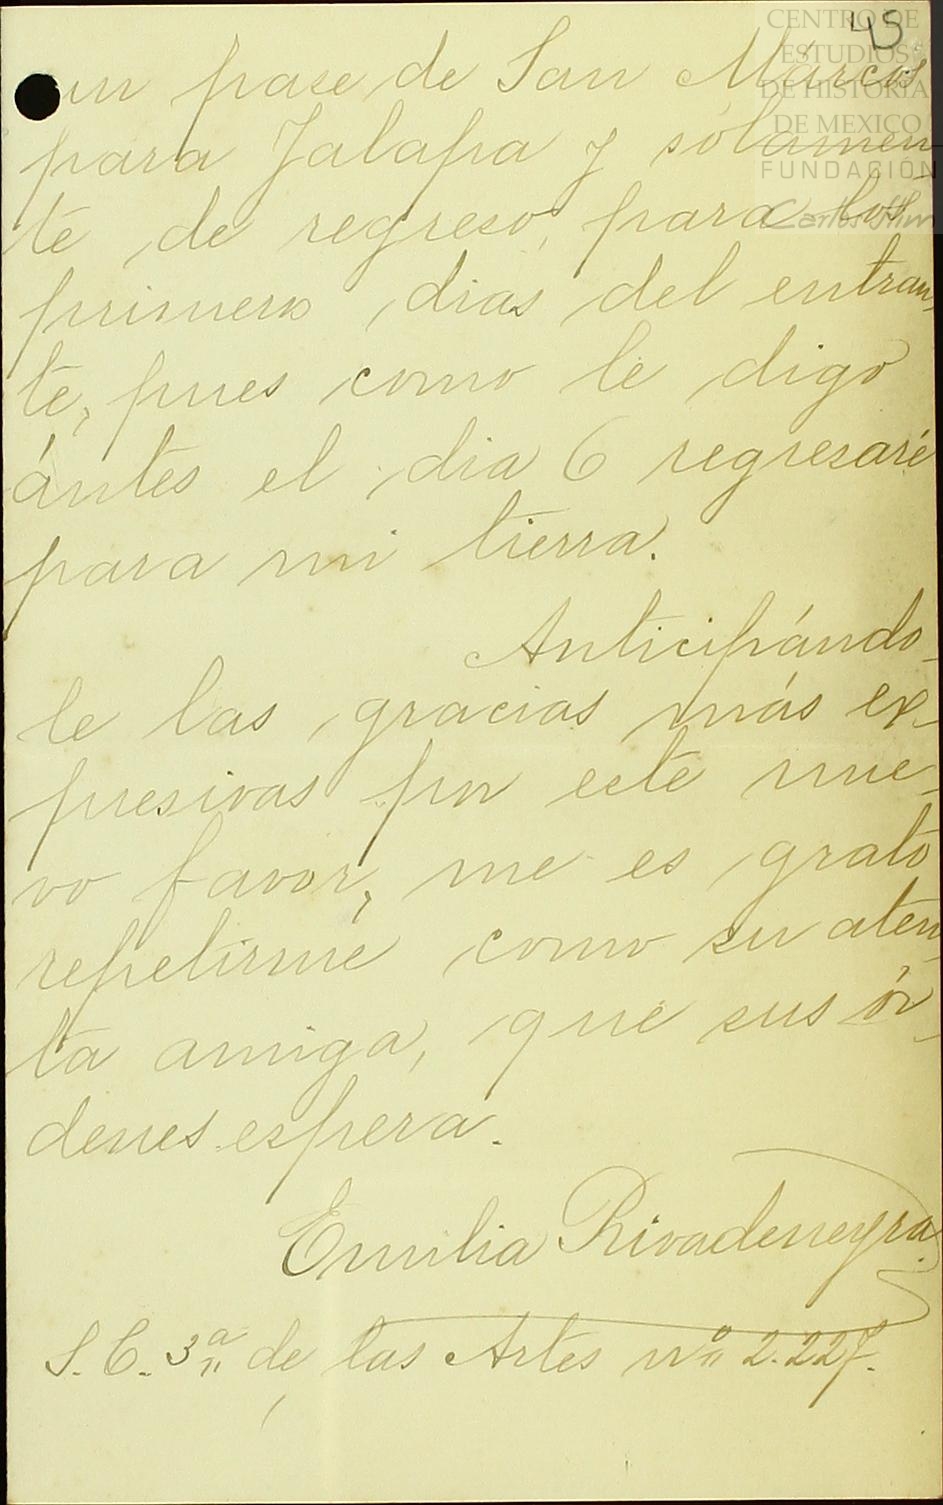 45
CENTRO DE
ESTUDIOS
DE HISTORIA
DE MEXICO
FUNDACIÓN
Carlos Slim
un pase de San Márcos
para Jalapa y sólamen
te de regreso, para los
primeros dias del entran
te, pues como le digo
ántes el dia 6 regresaré
para mi tierra.
Anticipándo-
le las gracias más ex-
presivas por este nue-
vo favor, me es grato
repetirme como su aten-
ta amiga, que sus ór-
denes espera.
Emilia Rivadeneyra.
S. C. 3ª de las Artes nº 2.227.